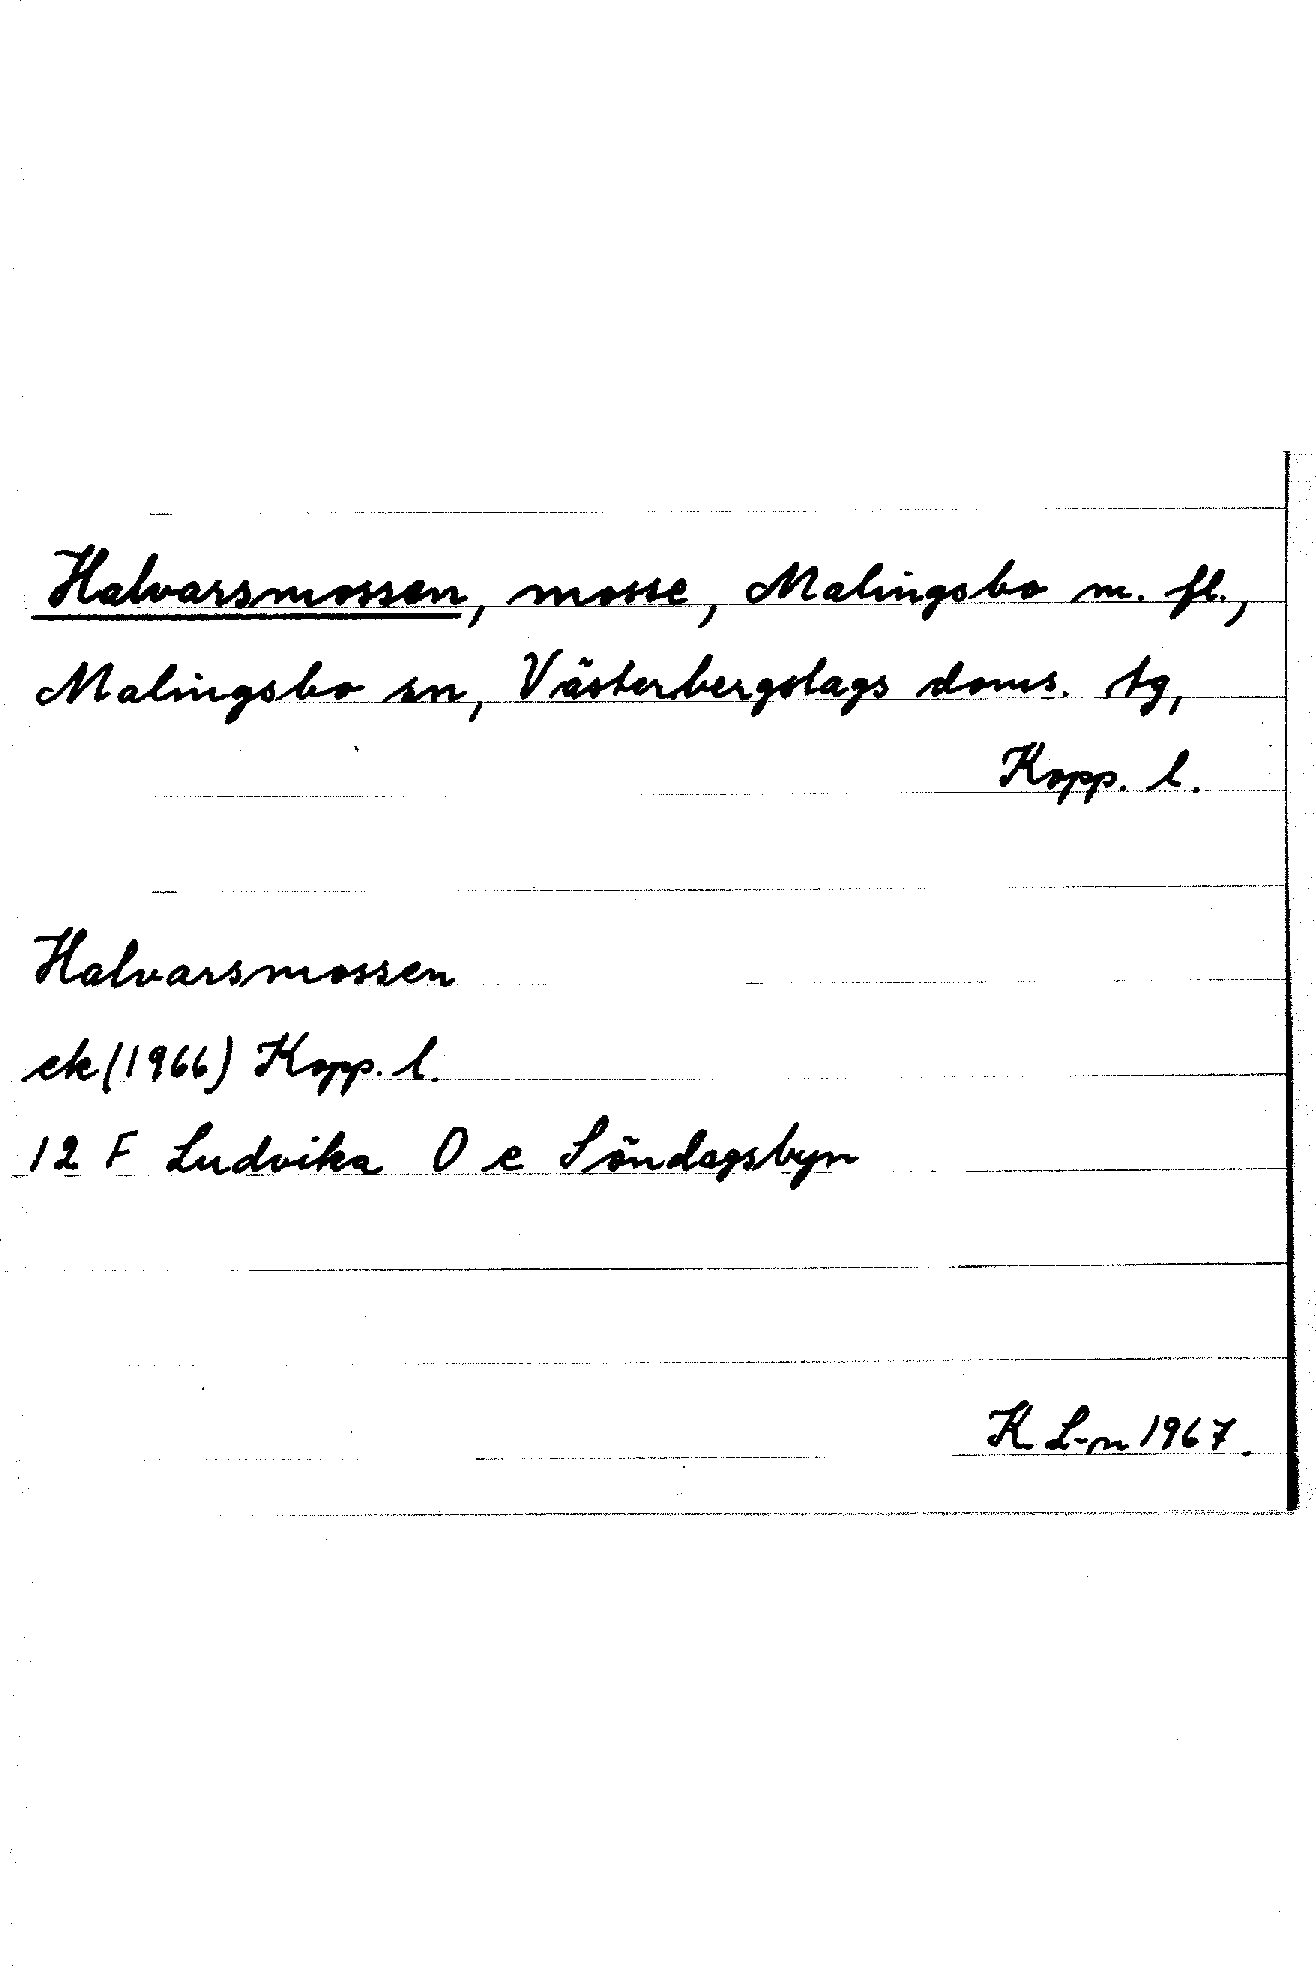 Halvarsmossen, mosse, Malingsbo m. fl.,
Malingsbo sn, Västerbergslags doms. tg,
Kopp. l.
Halvarsmossen
ek (1966) Kopp. l.
12 F Ludvika O e Söndagsbyn
K. L-n 1967.